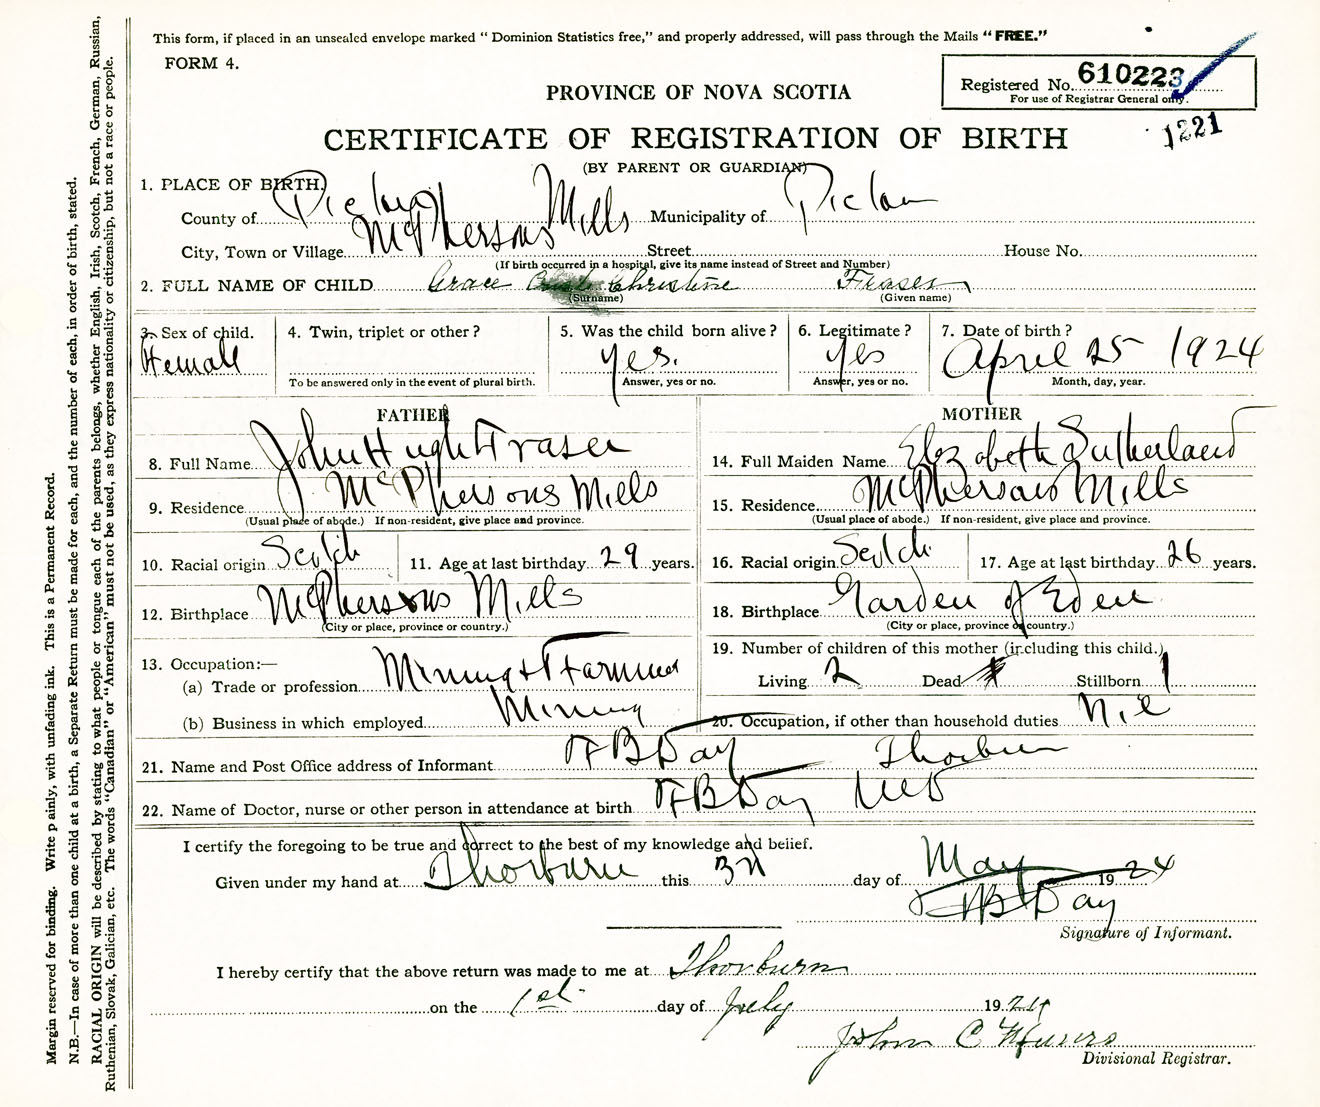 This form, if placed in an unsealed envelope marked " Dominion Statistics free," and properly addressed, will pass through the Mails "FREE."
FORM 4.
Registered No. 610223
For use of Registrar General only.
1221
PROVINCE OF NOVA SCOTIA
CERTIFICATE OF REGISTRATION OF BIRTH
(BY PARENT OR GUARDIAN)
1. PLACE OF BIRTH.
County of Pictou Municipality of Pictou
City, Town or Village McPhersons Mills Street House No.
(If birth occurred in a hospital, give its name instead of Street and Number)
2. FULL NAME OF CHILD Grace Christine Fraser
(Surname) (Given name)
3. Sex of child. 4. Twin, triplet or other ? 5. Was the child born alive ? 6. Legitimate ? 7. Date of birth ?
Female yes. yes April 25 1924
To be answered only in the event of plural birth. Answer, yes or no. Answer, yes or no. Month, day, year.
FATHER MOTHER
8. Full Name John Hugh Fraser 14. Full Maiden Name Elizabeth Sutherland
9. Residence McPhersons Mills 15. Residence McPhersons Mills
(Usual place of abode.) If non-resident, give place and province. (Usual place of abode.) If non-resident, give place and province.
10. Racial origin Scotch 11. Age at last birthday 29 years. 16. Racial origin Scotch 17. Age at last birthday 26 years.
12. Birthplace McPhersons Mills 18. Birthplace Garden of Eden
(City or place, province or country.) (City or place, province or country.)
13. Occupation:— 19. Number of children of this mother (including this child.)
(a) Trade or profession Mining & Farming Living 2 Dead Stillborn 1
(b) Business in which employed Mining 20. Occupation, if other than household duties Nil
21. Name and Post Office address of Informant F B Day Thorburn
22. Name of Doctor, nurse or other person in attendance at birth F B Day MD
I certify the foregoing to be true and correct to the best of my knowledge and belief.
Given under my hand at Thorburn this 3rd day of May 1924
F B Day
Signature of Informant.
I hereby certify that the above return was made to me at Thorburn
on the 1st day of July 1924
John C Munro
Divisional Registrar.
Margin reserved for binding. Write plainly, with unfading ink. This is a Permanent Record.
N.B.—In case of more than one child at a birth, a Separate Return must be made for each, and the number of each, in order of birth, stated.
RACIAL ORIGIN will be described by stating to what people or tongue each of the parents belongs, whether English, Irish, Scotch, French, German, Russian,
Ruthenian, Slovak, Galician, etc. The words "Canadian" or "American" must not be used, as they express nationality or citizenship, but not a race or people.